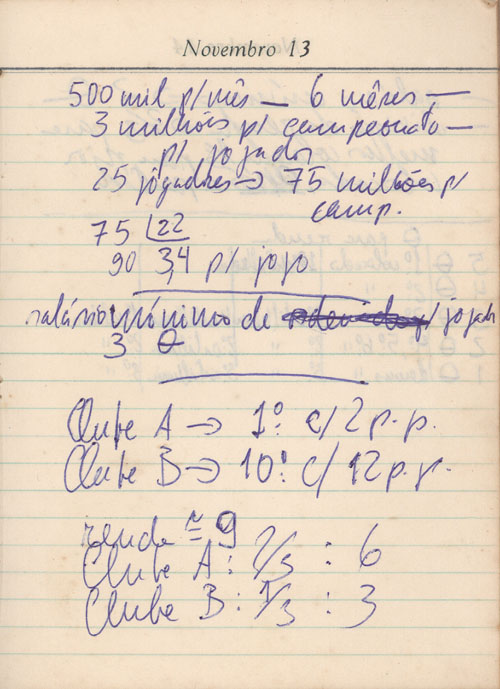 Novembro 13
500 mil p/ mês — 6 mêses —
3 milhões p/ campeonato —
p/ jogador
25 jogadores → 75 milhões p/
camp.
75 22
90 3,4 p/ jogo
salário mínimo de p/ jogador
3 θ
Clube A → 1º c/ 2 p.p.
Clube B → 10º c/ 12 p.p.
renda ≃ 9
Clube A: 2/3 : 6
Clube B: 1/3 : 3